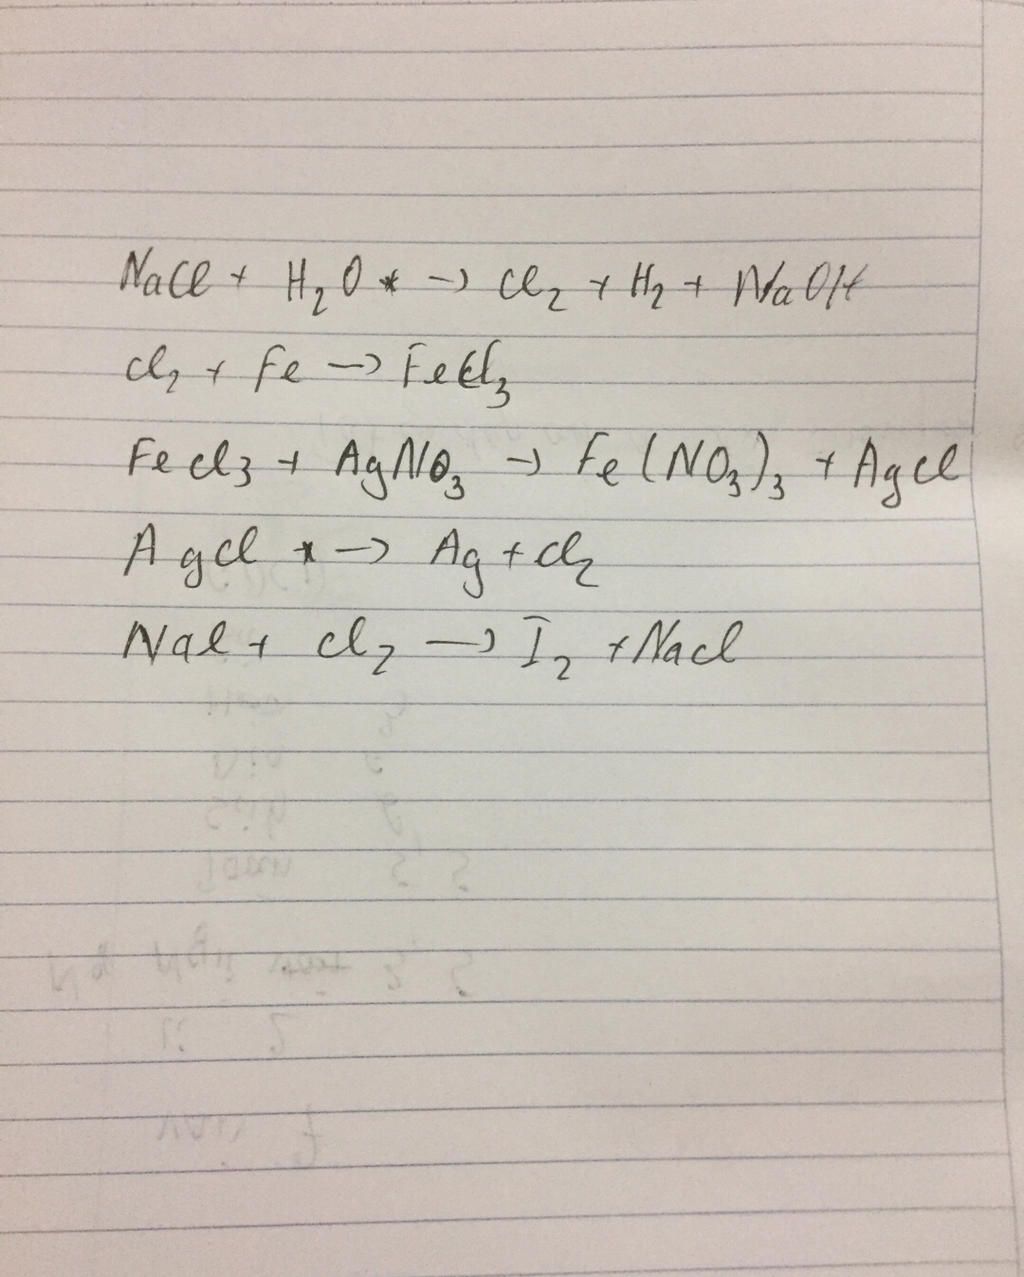 NaCl + H₂O * → Cl₂ + H₂ + NaOH
Cl₂ + Fe → FeCl₃
FeCl₃ + AgNO₃ → Fe(NO₃)₃ + AgCl
AgCl * → Ag + Cl₂
NaI + Cl₂ → I₂ + NaCl